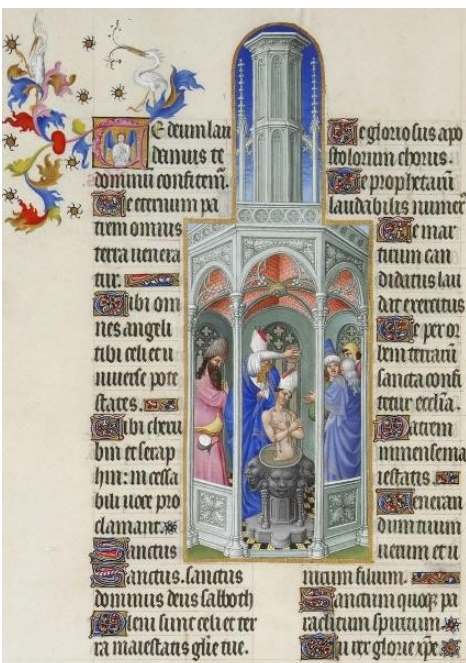 Te deum lau
damus te
dominum confitem̄.
Te eternum pa
trem omnis
terra uenera
tur.
Tibi om
nes angeli
tibi celi et u
niuerse pote
states.
Tibi cheru
bin et serap
hin: incessa
bili uoce pro
clamant.
Sanctus
Sanctus. sanctus
dominus deus sabboth
Pleni sunt celi et ter
ra maiestatis glīe tue.
Te gloriosus apo
stolorum chorus.
Te prophetarū
laudabilis numer
Te mar
tirum can
didatus lau
dat exercitus
Te per or
bem terrarū
sancta confi
tetur ecclīa.
Patrem
immense ma
iestatis.
Ueneran
dum tuum
uerum et u
nicum filium.
Sanctum quoqꝫ pa
raclitum spiritum.
Tu rex glorie xp̄e.